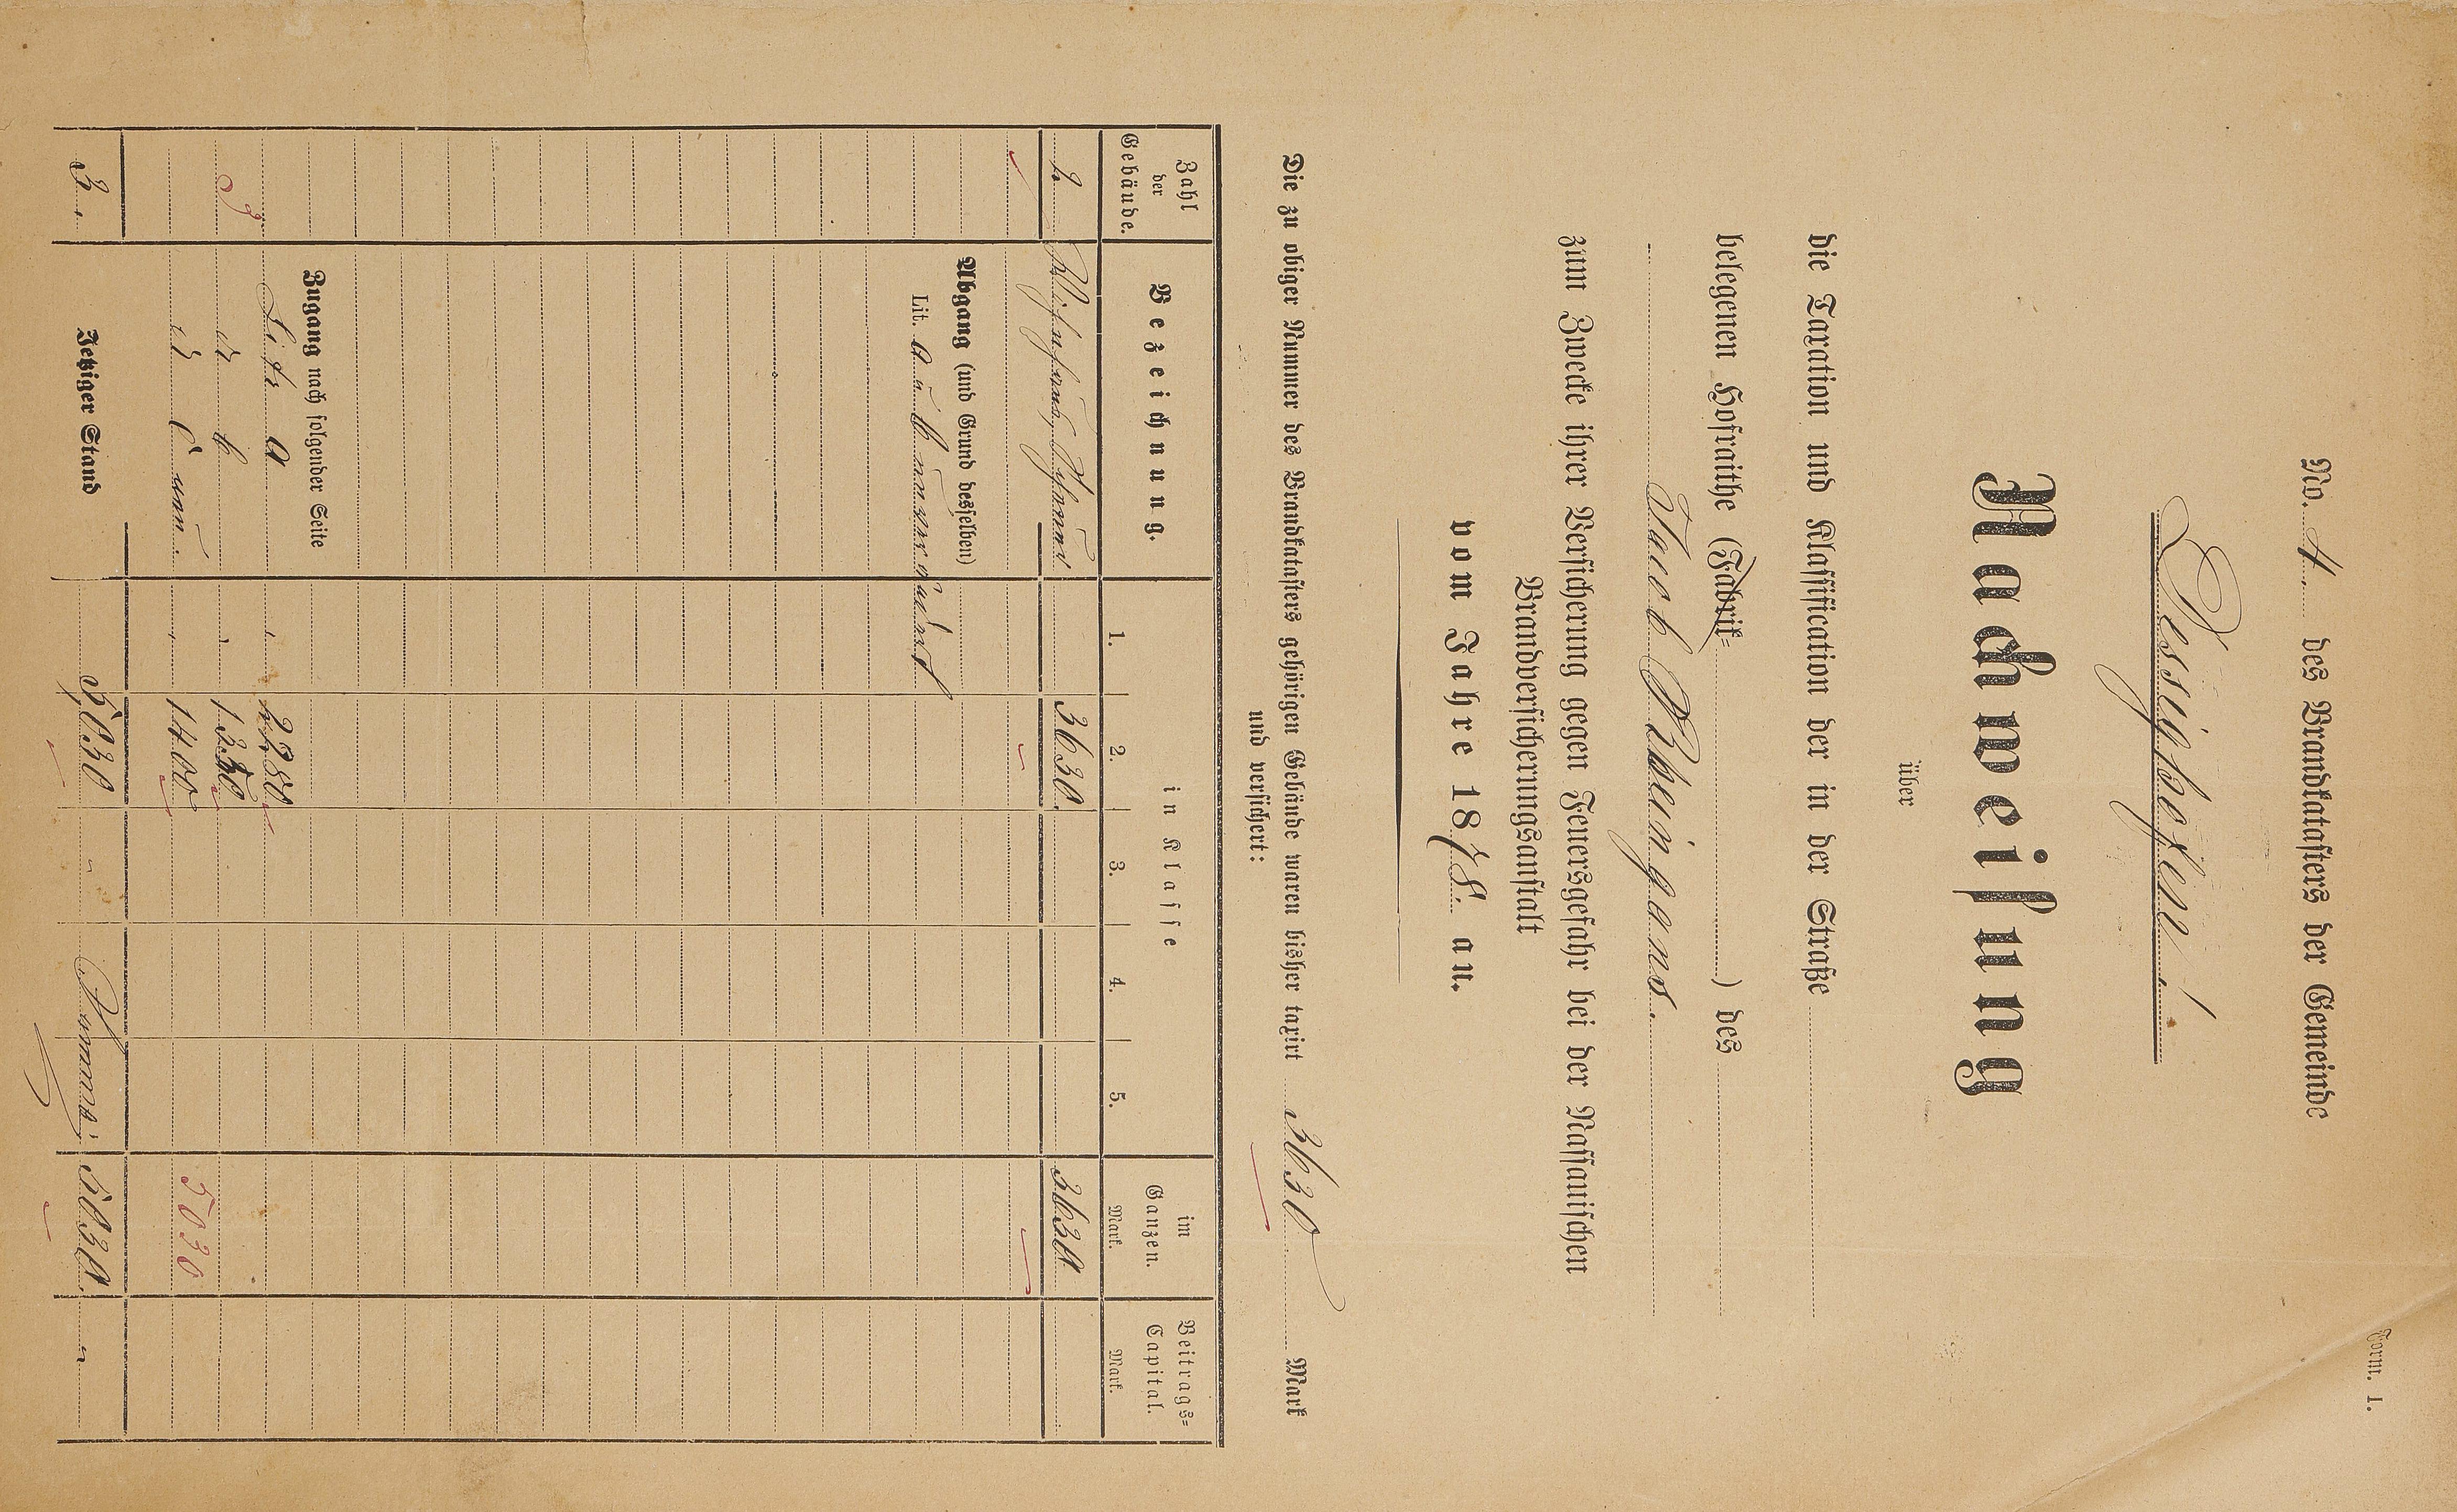 Form. 1.
No. 4. des Brandkatasters der Gemeinde
Dessighofen.
Nachweisung
über
die Taxation und Klassification der in der Straße
belegenen Hofraithe (Fabrik= ) des
Jacob Rheingans.
zum Zwecke ihrer Versicherung gegen Feuersgefahr bei der Nassauischen
Brandversicherungsanstalt
vom Jahre 1878. an.
Die zu obiger Nummer des Brandkatasters gehörigen Gebäude waren bisher taxirt 3630 Mark
und versichert:
Zahl der Gebäude. Bezeichnung. in Klasse im Ganzen. Beitrags=Capital.
1. 2. 3. 4. 5. Mark. Mark.
2. Wohnhaus, Scheuer 3630 3630
Abgang (und Grund desselben)
Lit. a u. b unverändert
Zugang nach folgender Seite
Litr a " 2280
3 " b " 1350
" c neu. " 1400 5030
3. Jetziger Stand 5030 " Summa: 5030. "